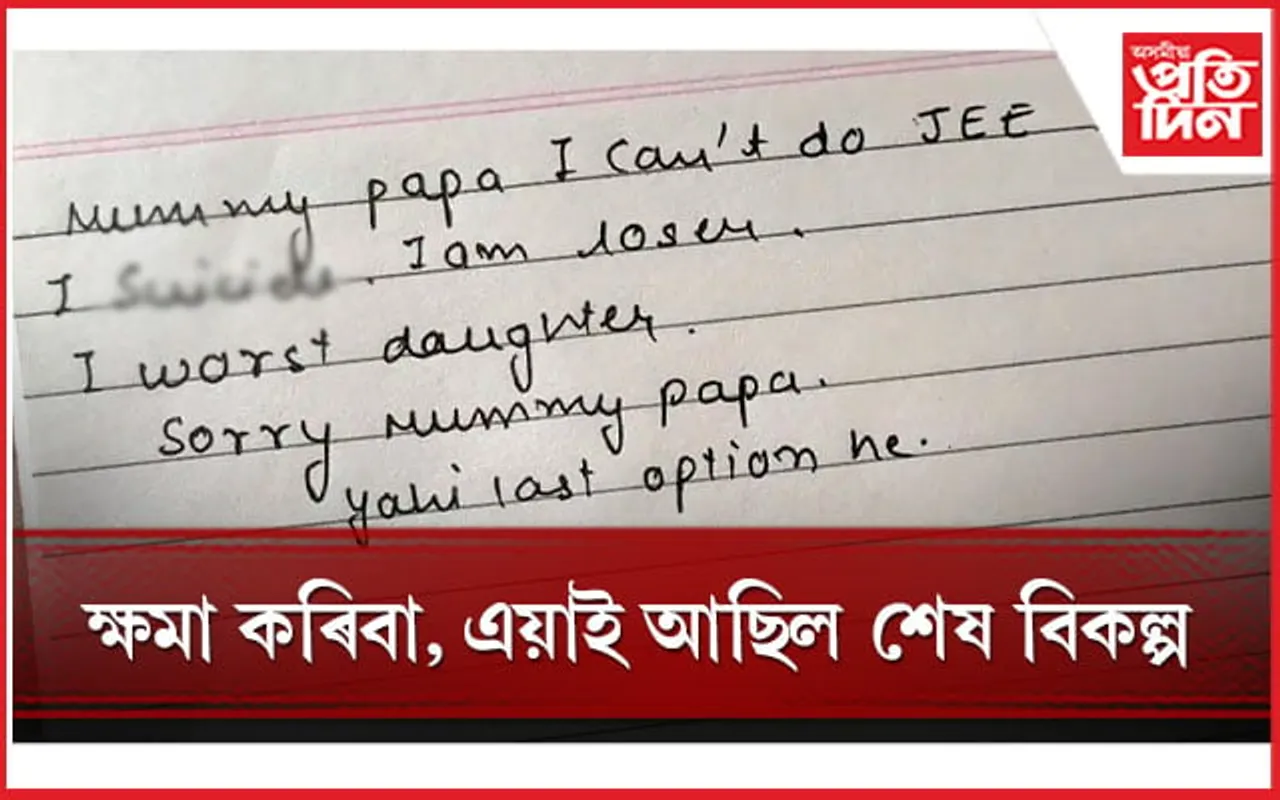 অসমীয়া
প্ৰতি
দিন
Mummy papa I can't do JEE
I suicide. I am loser.
I worst daughter.
Sorry mummy papa.
yahi last option he.
ক্ষমা কৰিবা, এয়াই আছিল শেষ বিকল্প